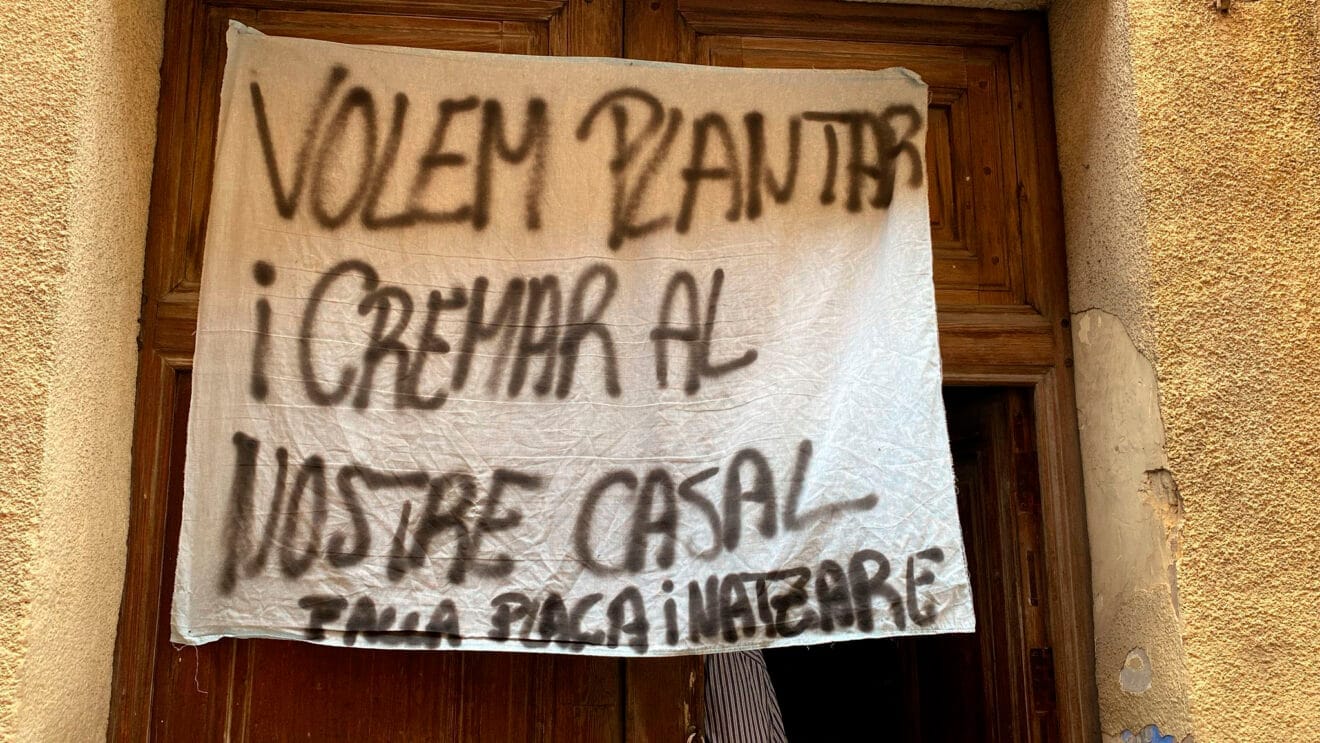 VOLEM PLANTAR
i CREMAR AL
NOSTRE CASAL
FALLA PLAÇA i NATZARE